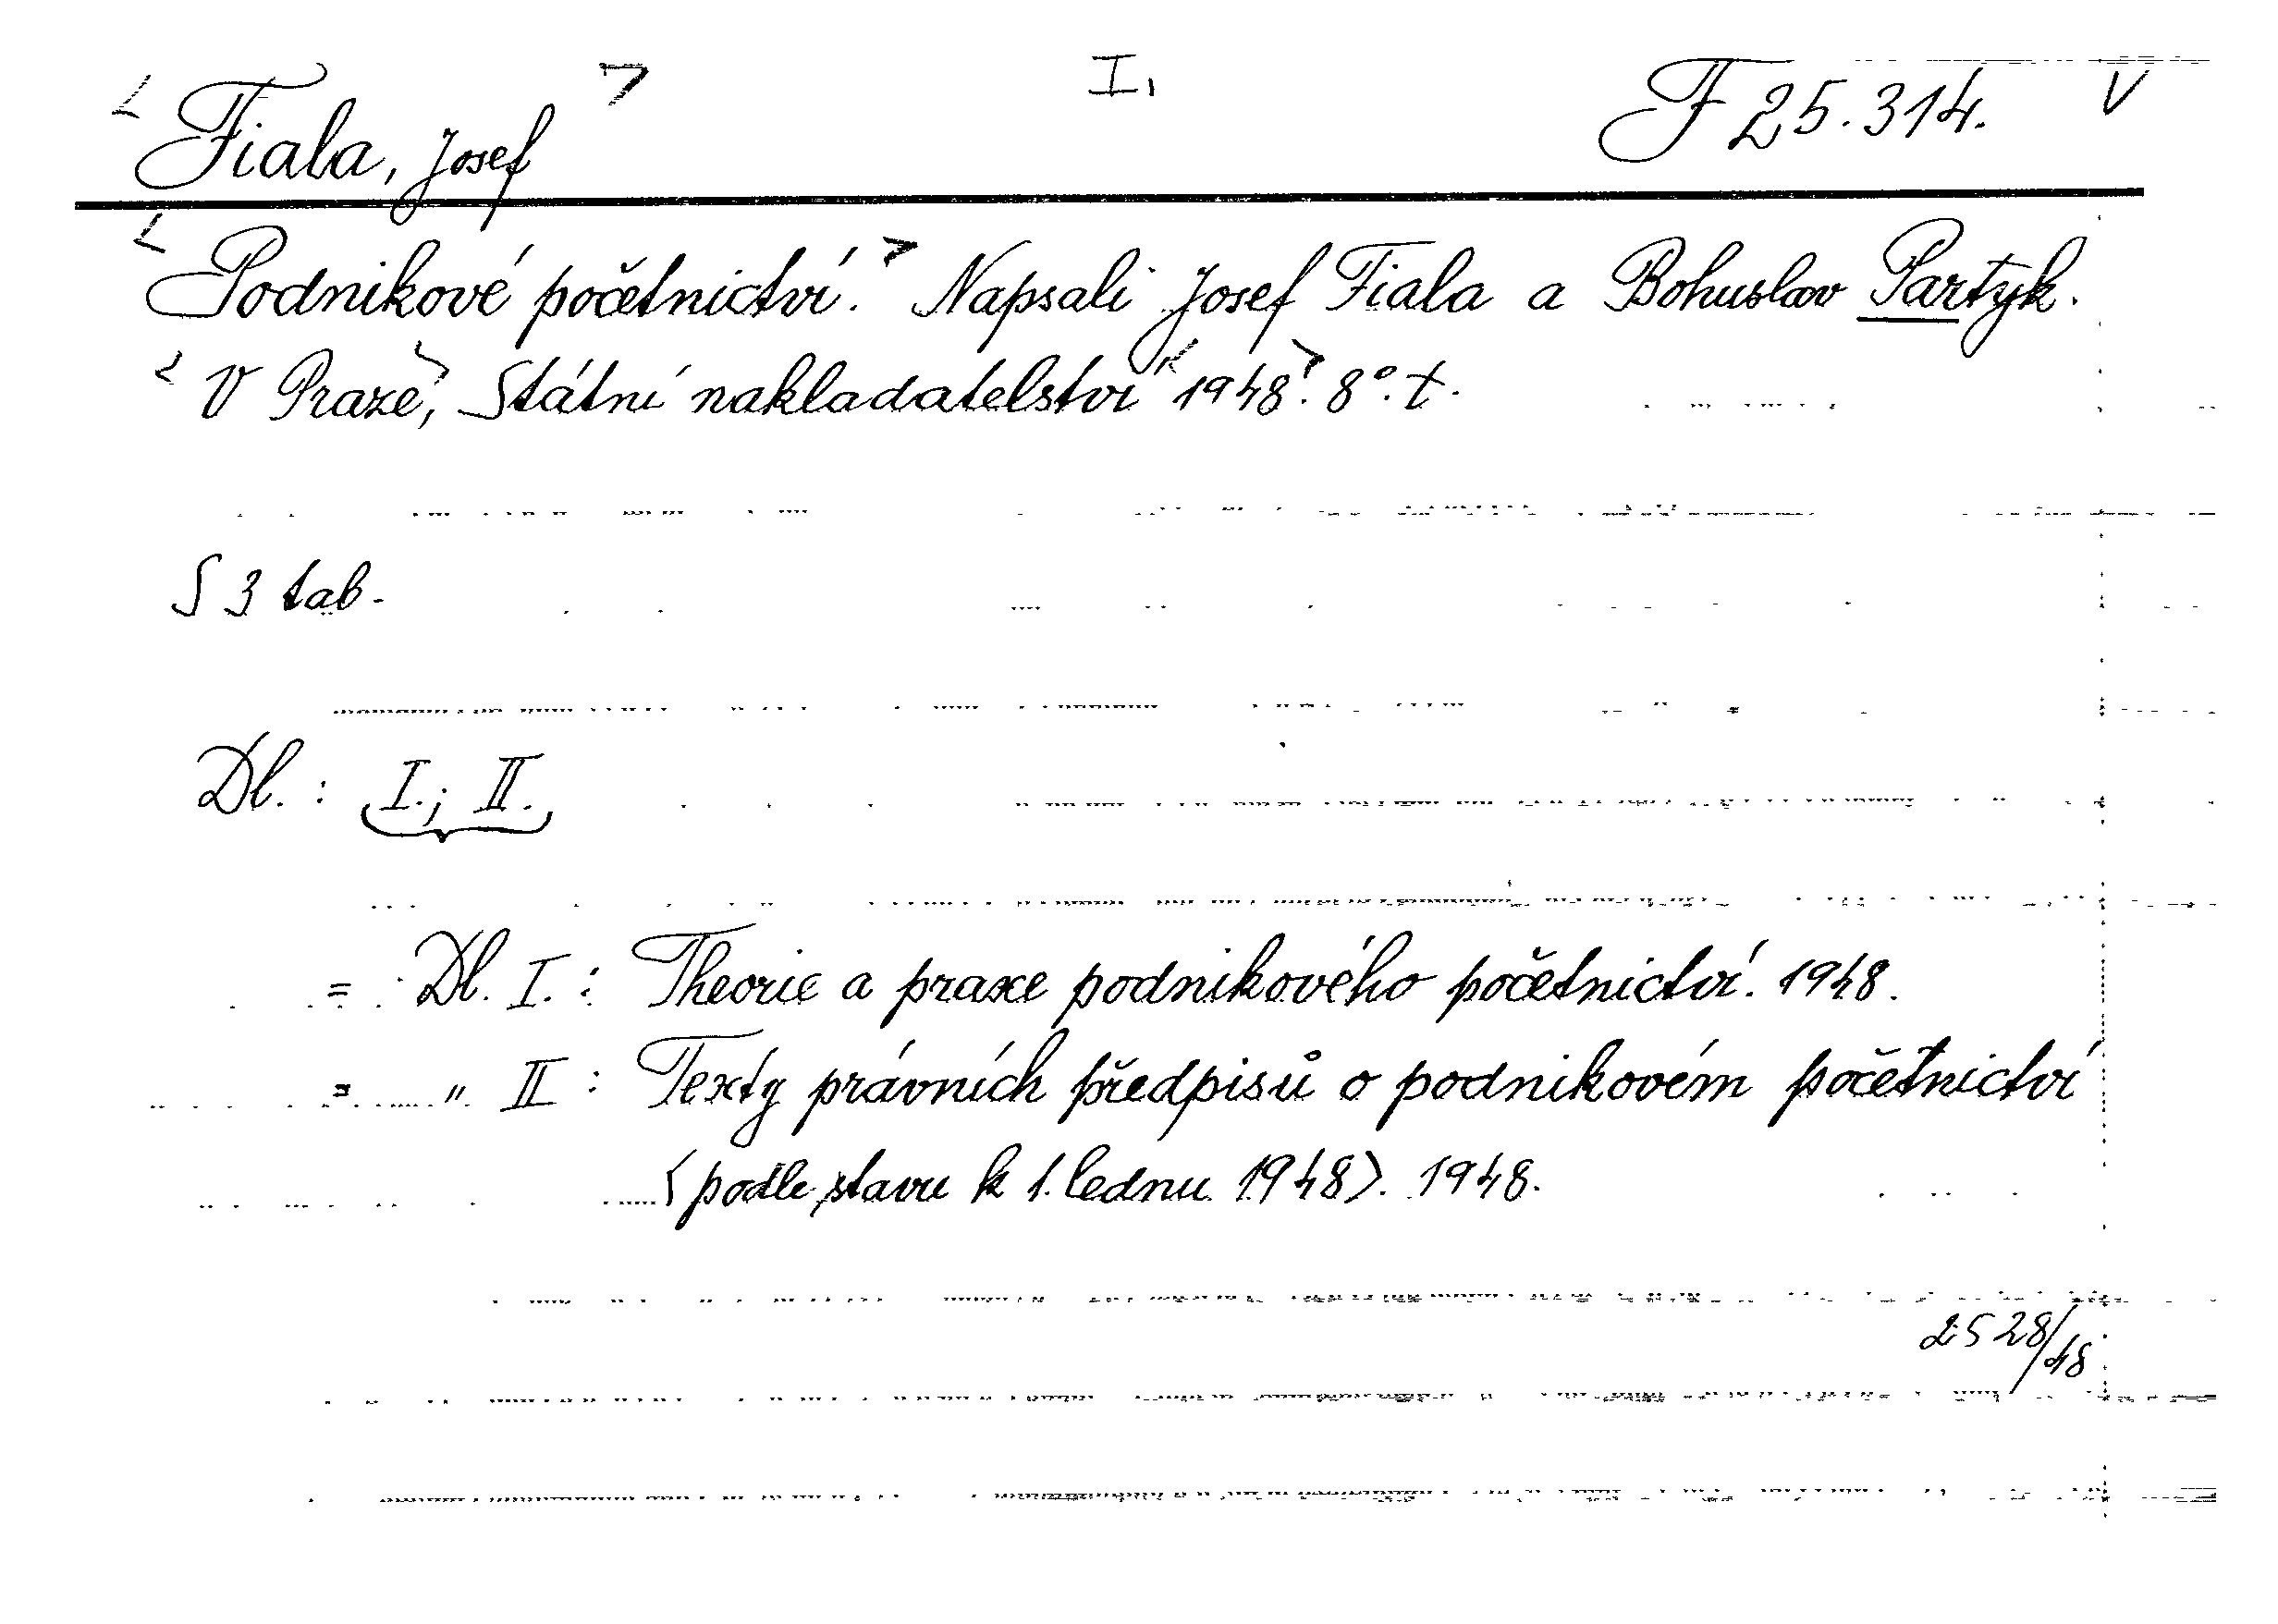 <Fiala, Josef> I, F 25.314. V
<Podnikové početnictví.> Napsali Josef Fiala a Bohuslav Partyk.
<V Praze>, Státní nakladatelství <1948>. 8°. t.
S 3 tab.
Dl. : I.; II.
= Dl. I. : Theorie a praxe podnikového početnictví. 1948.
= " II : Texty právních předpisů o podnikovém početnictví
(podle stavu k 1. lednu 1948). 1948.
2528/48